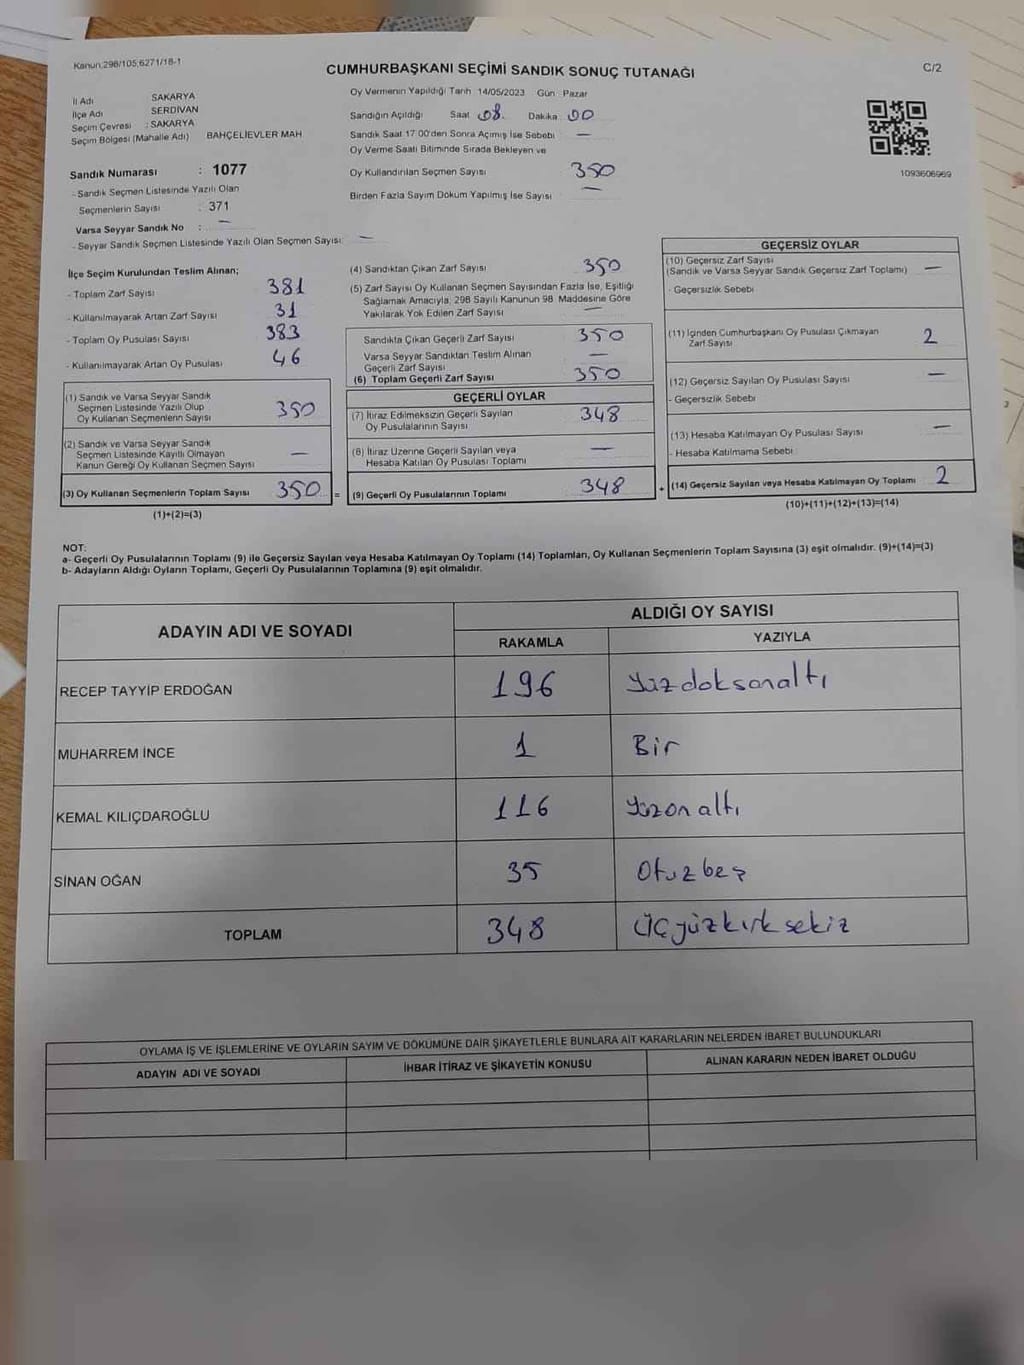 Kanun:298/105;6271/18-1
CUMHURBAŞKANI SEÇİMİ SANDIK SONUÇ TUTANAĞI
C/2
İl Adı SAKARYA
İlçe Adı SERDİVAN
Seçim Çevresi : SAKARYA
Seçim Bölgesi (Mahalle Adı) BAHÇELİEVLER MAH.
Sandık Numarası : 1077
- Sandık Seçmen Listesinde Yazılı Olan
Seçmenlerin Sayısı : 371
Varsa Seyyar Sandık No : —
- Seyyar Sandık Seçmen Listesinde Yazılı Olan Seçmen Sayısı: —
Oy Vermenin Yapıldığı Tarih 14/05/2023 Gün : Pazar
Sandığın Açıldığı Saat 08. Dakika 00
Sandık Saat 17.00'den Sonra Açılmış İse Sebebi : —
Oy Verme Saati Bitiminde Sırada Bekleyen ve
Oy Kullandırılan Seçmen Sayısı 350
Birden Fazla Sayım Döküm Yapılmış İse Sayısı —
1093606969
İlçe Seçim Kurulundan Teslim Alınan;
- Toplam Zarf Sayısı 381
- Kullanılmayarak Artan Zarf Sayısı 31
- Toplam Oy Pusulası Sayısı 383
- Kullanılmayarak Artan Oy Pusulası 46
(1) Sandık ve Varsa Seyyar Sandık
Seçmen Listesinde Yazılı Olup
Oy Kullanan Seçmenlerin Sayısı 350
(2) Sandık ve Varsa Seyyar Sandık
Seçmen Listesinde Kayıtlı Olmayan
Kanun Gereği Oy Kullanan Seçmen Sayısı —
(3) Oy Kullanan Seçmenlerin Toplam Sayısı 350 =
(1)+(2)=(3)
(4) Sandıktan Çıkan Zarf Sayısı 350
(5) Zarf Sayısı Oy Kullanan Seçmen Sayısından Fazla İse, Eşitliği
Sağlamak Amacıyla, 298 Sayılı Kanunun 98. Maddesine Göre
Yakılarak Yok Edilen Zarf Sayısı —
Sandıkta Çıkan Geçerli Zarf Sayısı 350
Varsa Seyyar Sandıktan Teslim Alınan
Geçerli Zarf Sayısı —
(6) Toplam Geçerli Zarf Sayısı 350
GEÇERLİ OYLAR
(7) İtiraz Edilmeksizin Geçerli Sayılan
Oy Pusulalarının Sayısı 348
(8) İtiraz Üzerine Geçerli Sayılan veya
Hesaba Katılan Oy Pusulası Toplamı —
(9) Geçerli Oy Pusulalarının Toplamı 348 +
GEÇERSİZ OYLAR
(10) Geçersiz Zarf Sayısı
(Sandık ve Varsa Seyyar Sandık Geçersiz Zarf Toplamı) —
- Geçersizlik Sebebi
(11) İçinden Cumhurbaşkanı Oy Pusulası Çıkmayan
Zarf Sayısı 2
(12) Geçersiz Sayılan Oy Pusulası Sayısı —
- Geçersizlik Sebebi
(13) Hesaba Katılmayan Oy Pusulası Sayısı —
- Hesaba Katılmama Sebebi
(14) Geçersiz Sayılan veya Hesaba Katılmayan Oy Toplamı 2
(10)+(11)+(12)+(13)=(14)
NOT:
a- Geçerli Oy Pusulalarının Toplamı (9) ile Geçersiz Sayılan veya Hesaba Katılmayan Oy Toplamı (14) Toplamları, Oy Kullanan Seçmenlerin Toplam Sayısına (3) eşit olmalıdır. (9)+(14)=(3)
b- Adayların Aldığı Oyların Toplamı, Geçerli Oy Pusulalarının Toplamına (9) eşit olmalıdır.
ADAYIN ADI VE SOYADI ALDIĞI OY SAYISI
RAKAMLA YAZIYLA
RECEP TAYYİP ERDOĞAN 196 Yüzdoksanaltı
MUHARREM İNCE 1 Bir
KEMAL KILIÇDAROĞLU 116 Yüzonaltı
SİNAN OĞAN 35 Otuzbeş
TOPLAM 348 Üçyüzkırksekiz
OYLAMA İŞ VE İŞLEMLERİNE VE OYLARIN SAYIM VE DÖKÜMÜNE DAİR ŞİKAYETLERLE BUNLARA AİT KARARLARIN NELERDEN İBARET BULUNDUKLARI
ADAYIN ADI VE SOYADI İHBAR İTİRAZ VE ŞİKAYETİN KONUSU ALINAN KARARIN NEDEN İBARET OLDUĞU